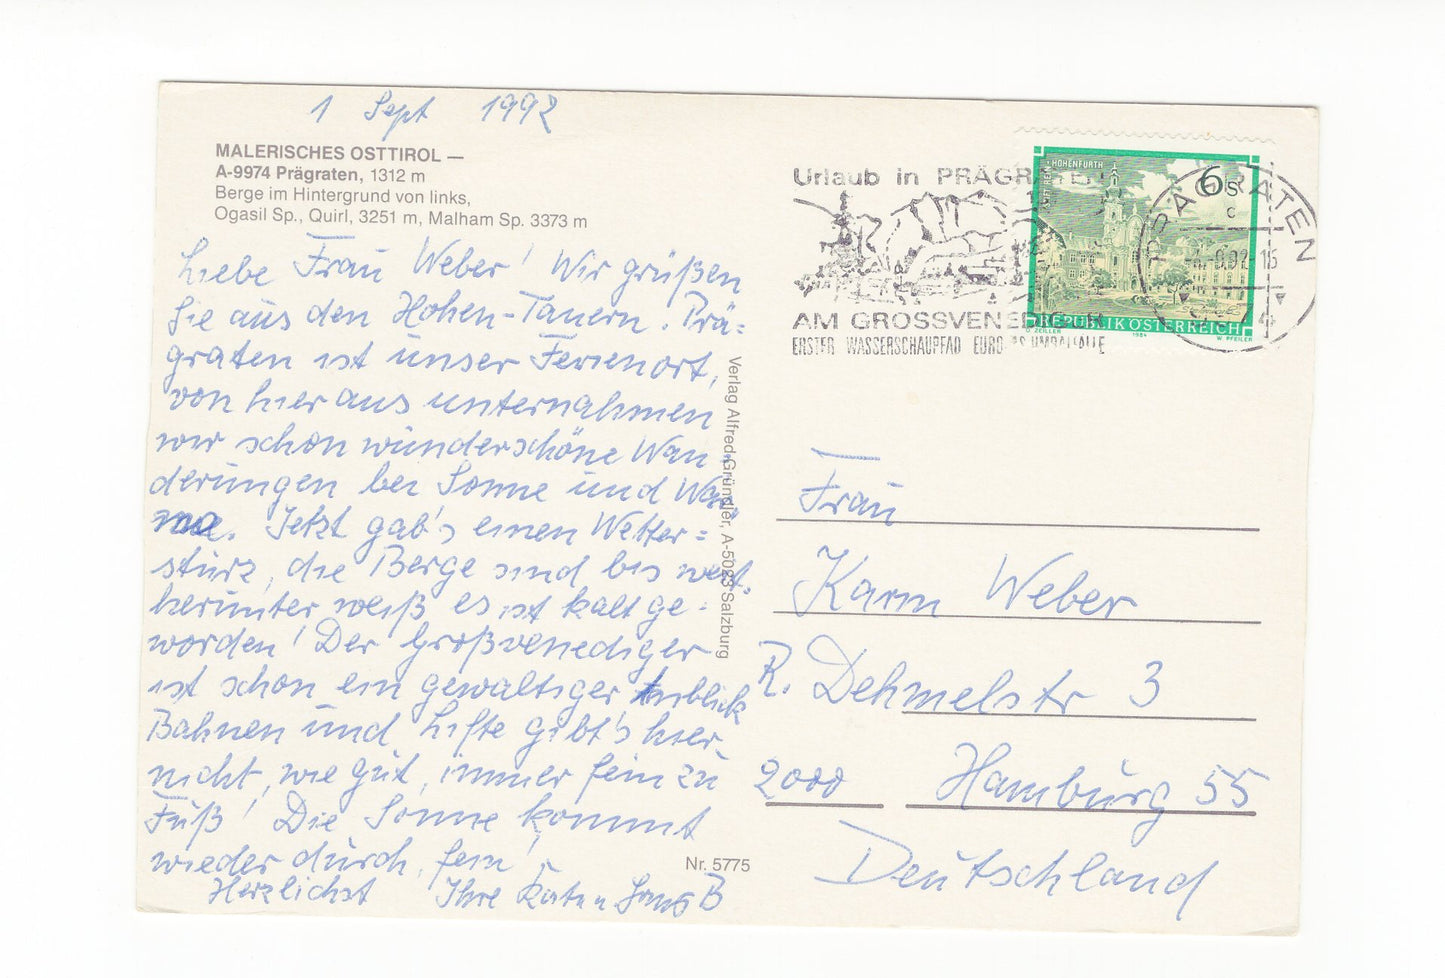 1 Sept 1992
MALERISCHES OSTTIROL —
A-9974 Prägraten, 1312 m
Berge im Hintergrund von links,
Ogasil Sp., Quirl, 3251 m, Malham Sp. 3373 m
Liebe Frau Weber! Wir grüßen
Sie aus den Hohen-Tauern. Prä=
graten ist unser Ferienort,
von hier aus unternahmen
wir schon wunderschöne Wan
derungen bei Sonne und
Jetzt gab's einen Wetter=
sturz, die Berge sind bis weit
herunter weiß es ist kalt ge-
worden! Der Großvenediger
ist schon ein gewaltiger Anblick
Bahnen und Lifte gibt's hier
nicht, wie gut, immer fein zu
Fuß! Die Sonne kommt
wieder durch, fein!
Herzlichst Ihre
Nr. 5775
Verlag Alfred Gründler, A-5023 Salzburg
Urlaub in PRÄGRATEN
AM GROSSVENEDIGER
ERSTER WASSERSCHAUPFAD EUROPAS UMBALFÄLLE
STIFT REIN-HOHENFURTH
6 S
REPUBLIK ÖSTERREICH
O. ZEILLER 1984 W. PFEILER
PRÄGRATEN
9974
Frau
Karin Weber
R. Dehmelstr 3
2000 Hamburg 55
Deutschland